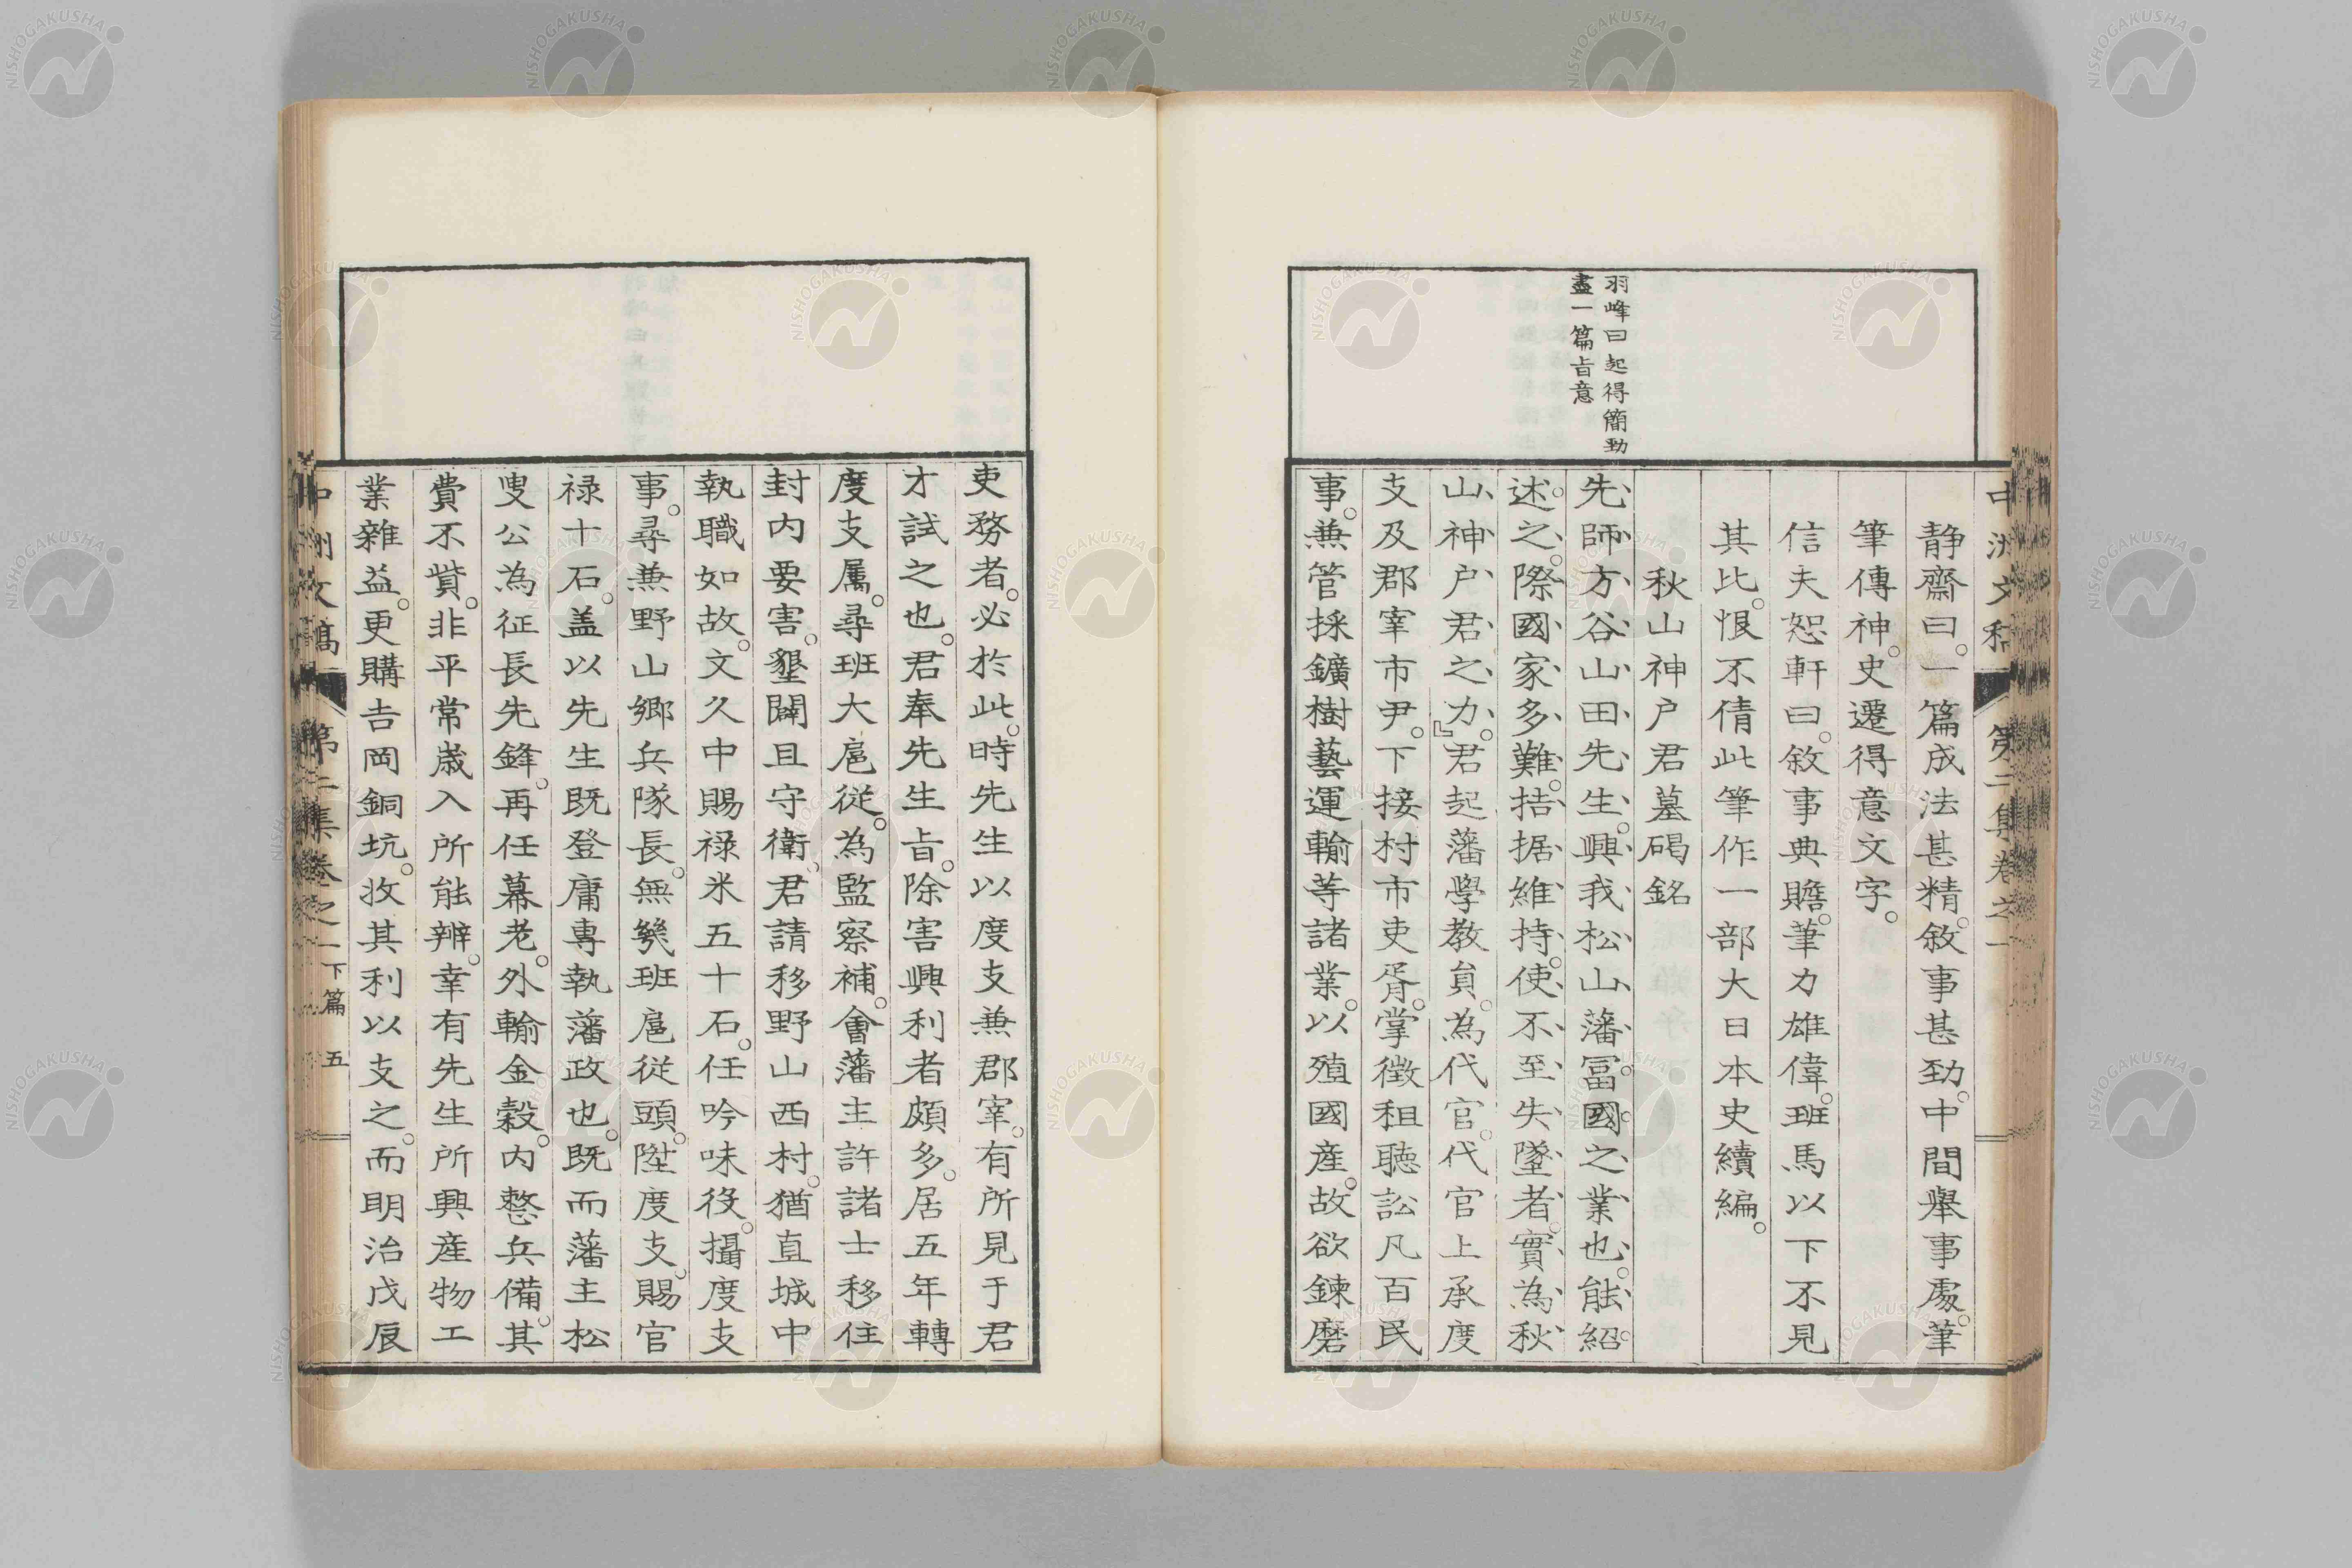 羽峰曰起得簡勁
盡一篇旨意
静齋曰。一篇成法甚精。敘事甚勁。中間舉事處。筆
筆傳神。史遷得意文字。
信夫恕軒曰。敘事典贍。筆力雄偉。班馬以下不見
其比。恨不倩此筆作一部大日本史續編。
秋山神戸君墓碣銘
先師方谷山田先生。興我松山藩冨國之業也。能紹
述之。際國家多難。拮据維持。使不至失墜者。實為秋
山神戸君之力。』君起藩學教貟。為代官。代官上承度
支及郡宰市尹。下接村市吏胥。掌徴租聴訟凡百民
事。兼管採鑛樹藝運輸等諸業。以殖國産。故欲鍊磨
吏務者。必於此。時先生以度支兼郡宰。有所見于君
才試之也。君奉先生旨。除害興利者頗多。居五年轉
度支属。尋班大扈従。為監察補。會藩主許諸士移住
封内要害。墾闢且守衛。君請移野山西村。猶直城中
執職如故。文久中賜禄米五十石。任吟味役。攝度支
事。尋兼野山郷兵隊長。無幾班扈従頭。陞度支。賜官
禄十石。盖以先生既登庸專執藩政也。既而藩主松
叟公為征長先鋒。再任幕老。外輸金穀。内整兵備。其
費不貲。非平常歳入所能辨。幸有先生所興産物工
業雜益。更購吉岡銅坑。收其利以支之。而明治戊辰
中洲文稿 第二集卷之一 下篇 五